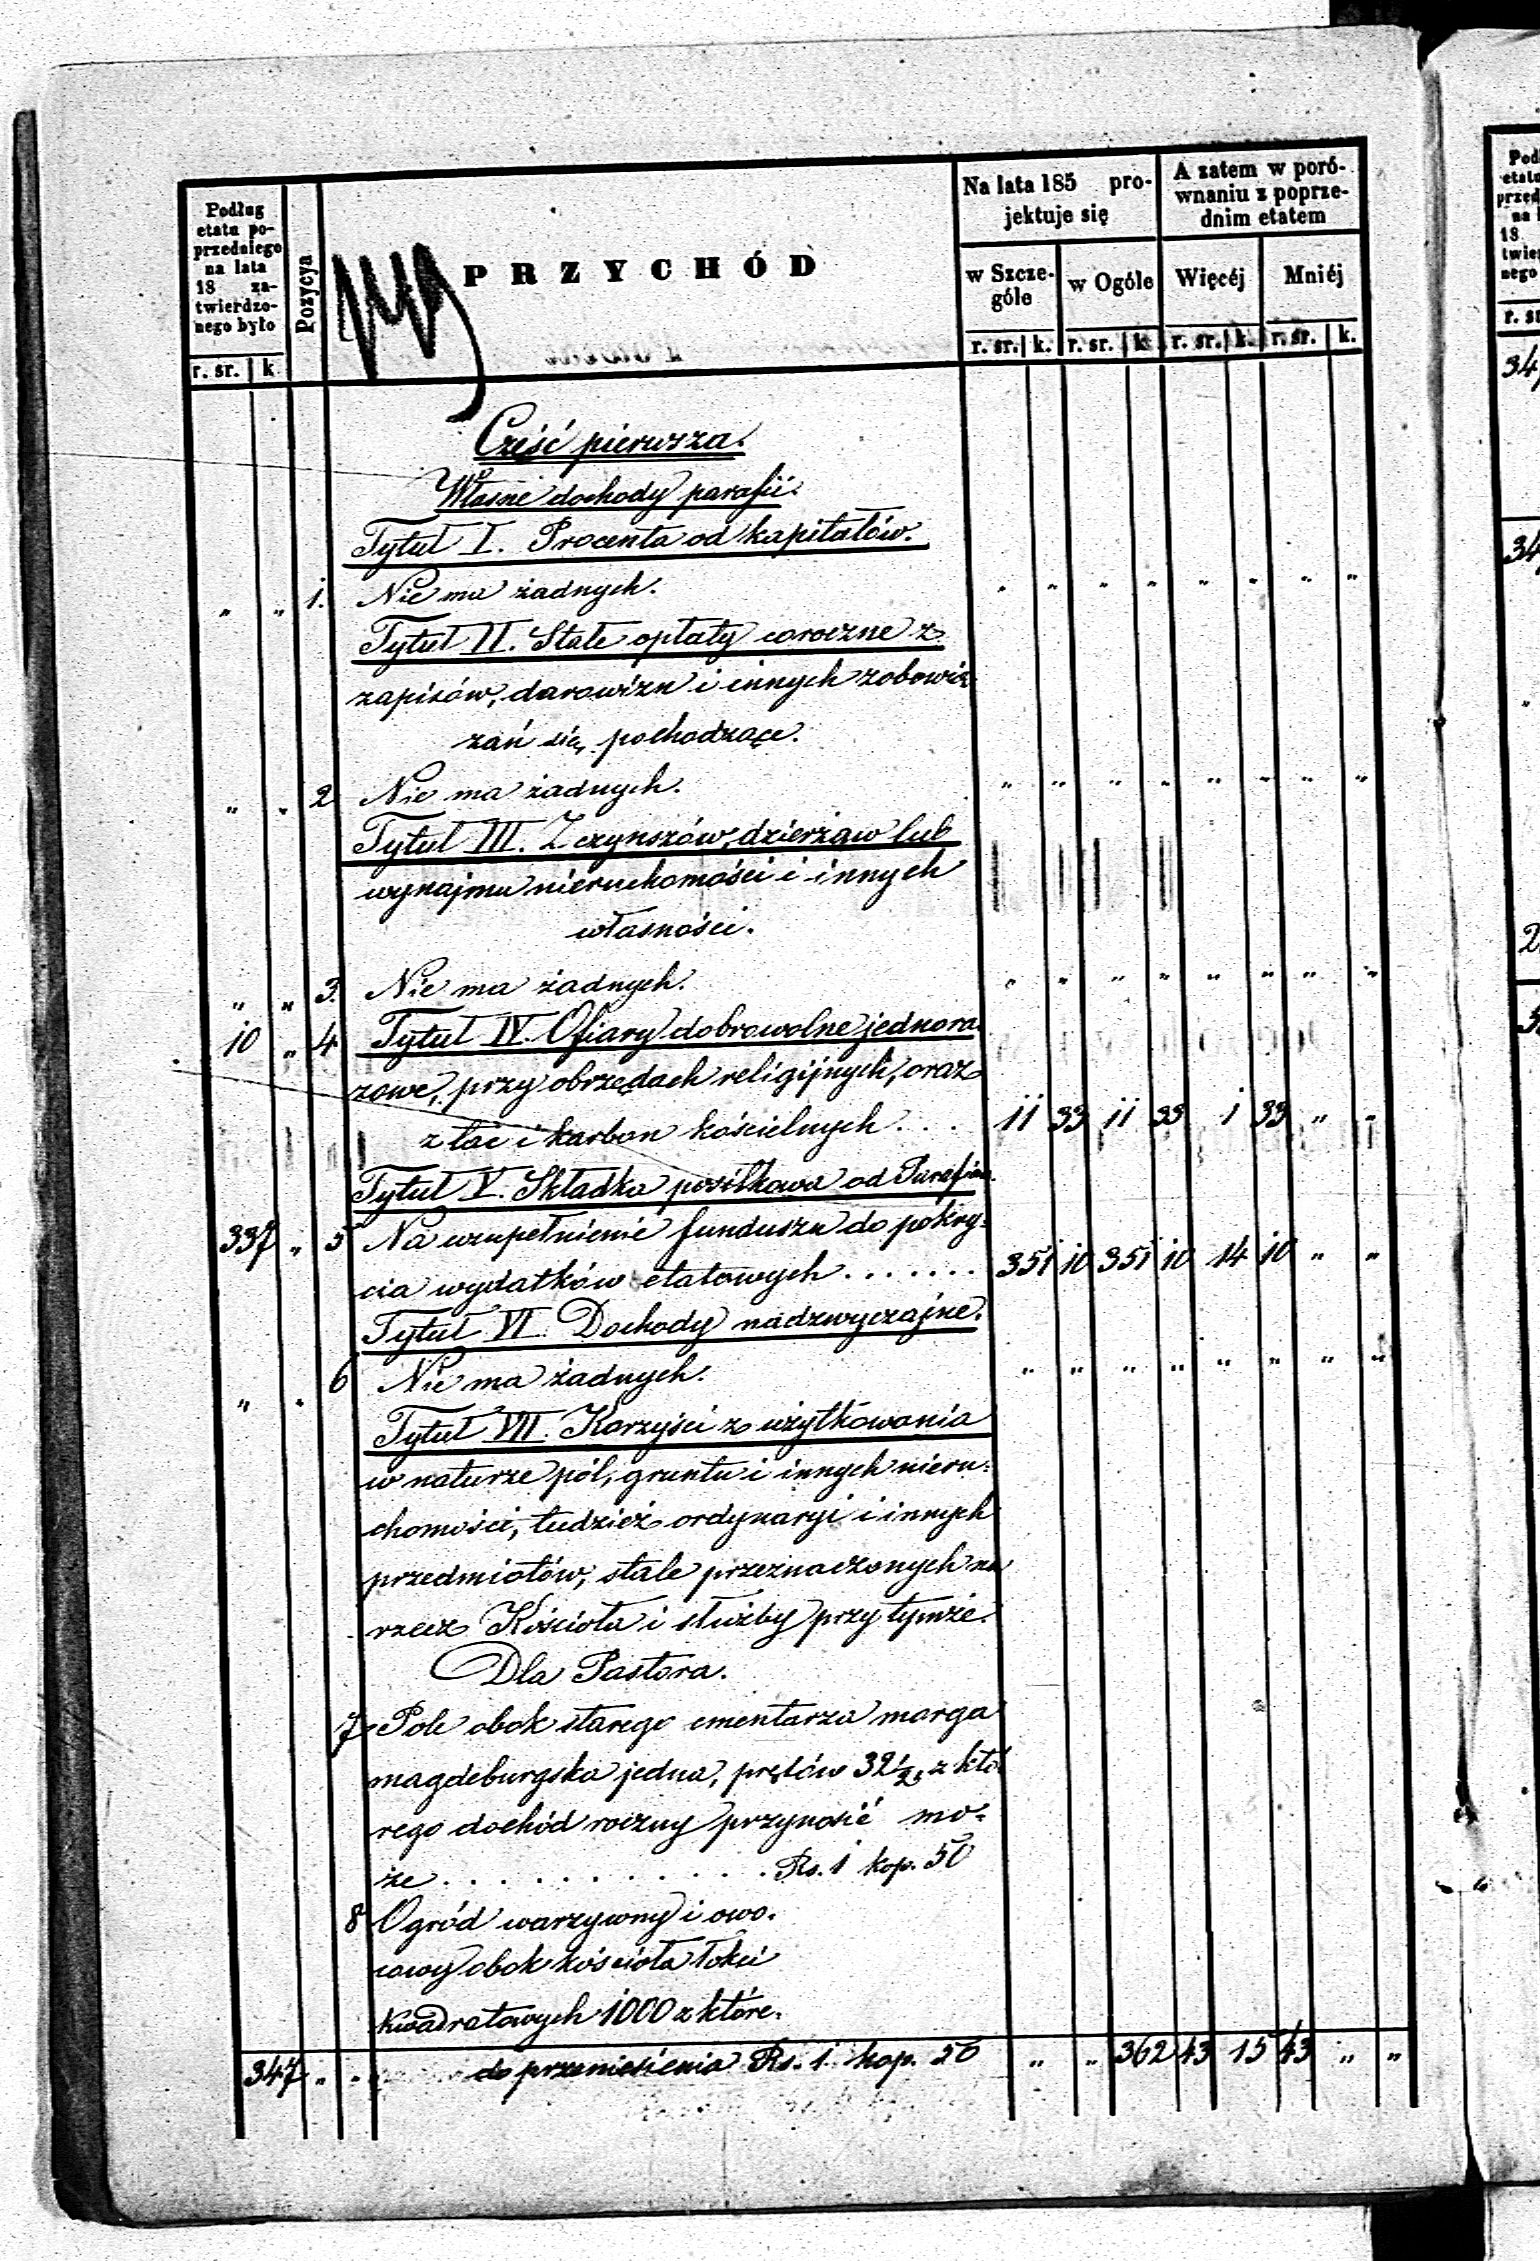 Podług etatu poprzedniego na lata 18 zatwierdzonego było
Pozycya
PRZYCHÓD
Na lata 185 projektuje się
A zatem w porównaniu z poprzednim etatem
w Szczególe
w Ogóle
Więcéj
Mniéj
r. sr. k. r. sr. k. r. sr. k. r. sr. k. r. sr. k.
Część pierwsza.
Własne dochody parafii.
Tytuł I. Procenta od kapitałów.
" " 1. Nie ma żadnych. " " " " " " " "
Tytuł II. Stałe opłaty coroczne z
zapisów, darowizn i innych zobowią
zań się pochodzące.
" " 2 Nie ma żadnych. " " " " " " " "
Tytuł III. Z czynszów, dzierżaw lub
wynajmu nieruchomości i innych
własności.
" " 3. Nie ma żadnych. " " " " " " " "
10 " 4 Tytuł IV. Ofiary dobrowolne jednora
zowe, przy obrzędach religijnych, oraz
z tac i karbon kościelnych . . . 11 33 11 33 1 33 " "
Tytuł V. Składka posiłkowa od Parafian.
337 " 5 Na uzupełnienie funduszu do pokry-
cia wydatków etatowych . . . . . . . 351 10 351 10 14 10 " "
Tytuł VI. Dochody nadzwyczajne.
" " 6 Nie ma żadnych. " " " " " " " "
Tytuł VII. Korzyści z użytkowania
w naturze pól, gruntu i innych nieru-
chomości, tudzież ordynaryi i innych
przedmiotów, stale przeznaczonych na
rzecz Kościoła i służby przy tymże.
Dla Pastora.
7 Pole obok starego cmentarza morga
magdeburgska jedna, prętów 32½, z któ-
rego dochód roczny przynosić mo-
że . . . . . . . . . . . Rs. 1 kop. 50
8 Ogród warzywny i owo-
cowy obok kościoła łokci
kwadratowych 1000 z które-
347 " " do przeniesienia Rs. 1. kop. 50 " " 362 43 15 43 " "